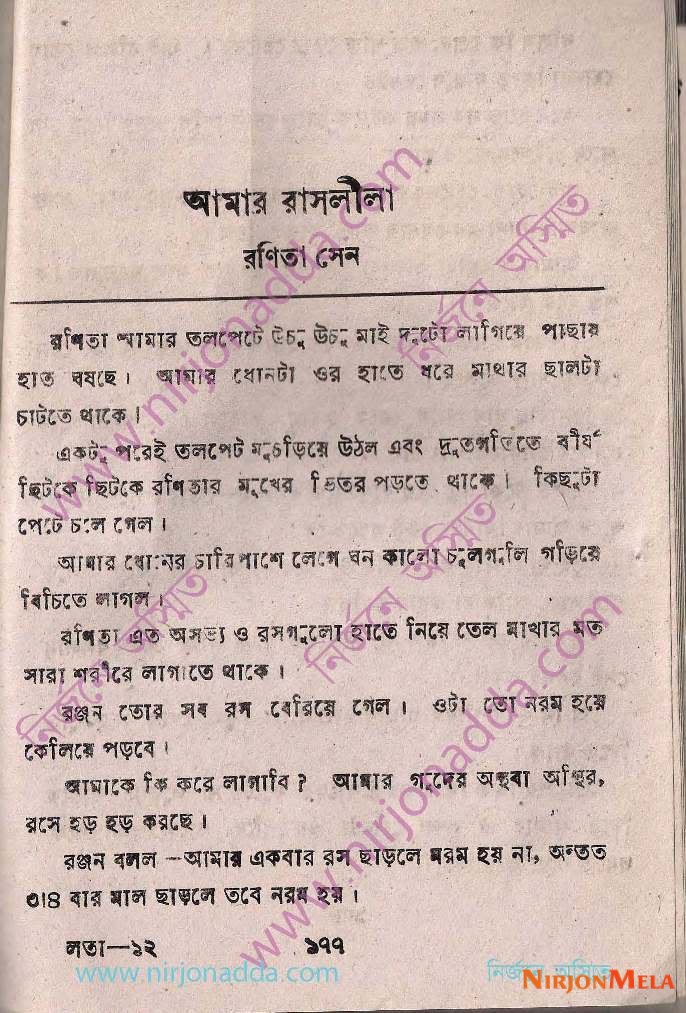 আমার রাসলীলা
রণিতা সেন
রণিতা আমার তলপেটে উঁচু উঁচু মাই দুটো লাগিয়ে পাছায়
হাত ঘষছে। আমার ধোনটা ওর হাতে ধরে মাথার ছালটা
চাটতে থাকে।
একটু পরেই তলপেট মুচড়িয়ে উঠল এবং দ্রুতগতিতে বীর্য
ছিটকে ছিটকে রণিতার মুখের ভিতর পড়তে থাকে। কিছুটা
পেটে চলে গেল।
আমার ধোনের চারিপাশে লেগে ঘন কালো চুলগুলি গড়িয়ে
বিচিতে লাগল।
রণিতা এত অসভ্য ও রসগুলো হাতে নিয়ে তেল মাখার মত
সারা শরীরে লাগাতে থাকে।
রঞ্জন তোর সব রস বেরিয়ে গেল। ওটা তো নরম হয়ে
কেলিয়ে পড়বে।
আমাকে কি করে লাগাবি? আমার গুদের অবস্থা অস্থির,
রসে হড় হড় করছে।
রঞ্জন বলল -আমার একবার রস ছাড়লে নরম হয় না, অন্তত
৩।৪ বার মাল ছাড়লে তবে নরম হয়।
লতা—১২
১৭৭
www.nirjonadda.com
নির্জনে অস্মিত
NIRJONMELA
www.nirjonadda.com
নির্জনে অস্মিত
নির্জনে অস্মিত
নির্জনে অস্মিত
www.nirjonadda.com